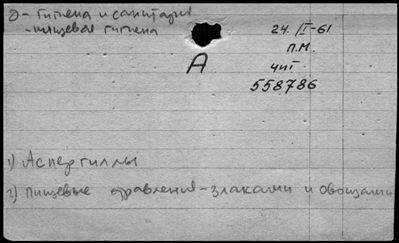 Э - Гигиена и санитария
- пищевая гигиена
24. II-61
П.М.
А
чит
558786
1) Аспергиллы
2) Пищевые отравления - злаками и овощами